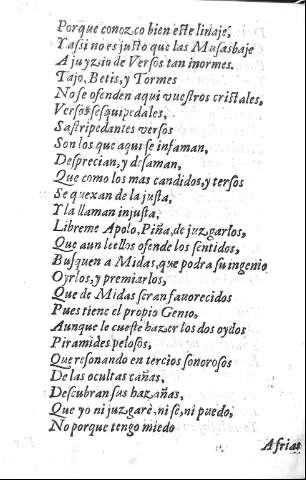 Porque conozco bien este linaje,
Y assi no es justo que las Musas baje
A juyzio de Versos tan inormes.
Tajo, Betis, y Tormes
No se ofenden aqui vuestros cristales,
Versos sesquipedales,
Sastripedantes versos
Son los que aqui se infaman,
Desprecian, y disaman,
Que como los mas candidos, y tersos
Se quexan de la justa,
Y la llaman injusta,
Libreme Apolo, Piña, de juzgarlos,
Que aun leellos ofende los sentidos,
Busquen a Midas, que podra su ingenio
Oyrlos, y premiarlos,
Que de Midas seran fauorecidos
Pues tiene el propio Genio,
Aunque le cueste hazer los dos oydos
Piramides pelosos,
Que resonando en tercios sonorosos
De las ocultas cañas,
Descubran sus hazañas,
Que yo ni juzgarè, ni sè, ni puedo,
No porque tengo miedo
A frias